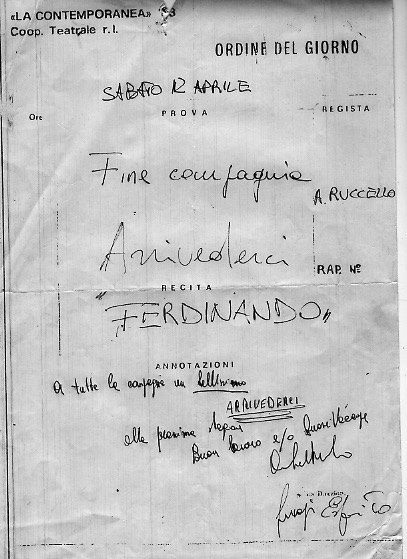 «LA CONTEMPORANEA» 83
Coop. Teatrale r.l.
ORDINE DEL GIORNO
SABATO 12 APRILE
Ore PROVA REGISTA
Fine compagnia
A. RUCCELLO
Arrivederci
RAP. N°
RECITA
"FERDINANDO"
ANNOTAZIONI
A tutte le compagne un bellissimo
ARRIVEDERCI
alla prossima
Buon lavoro e/o Buone Vacanze